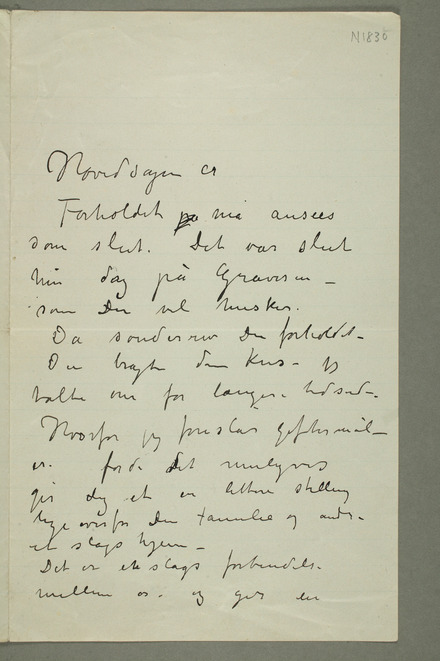 N1830
Hovedsagen er
Forholdet må ansees
som slut. Det var slut
hin dag på Graveren –
som Du vil husker.
Da sonderrev Du forholdet –
Du bragte den Kris – jeg
talte om for længere tid sid –
Hvorfor jeg foreslår giftermål –
er fordi det muligvis
gir dig et en lettere stilling
lige overfor Din familie og andre –
et slags hjem –
Det er et slags forbindelse
mellem os – og gir en